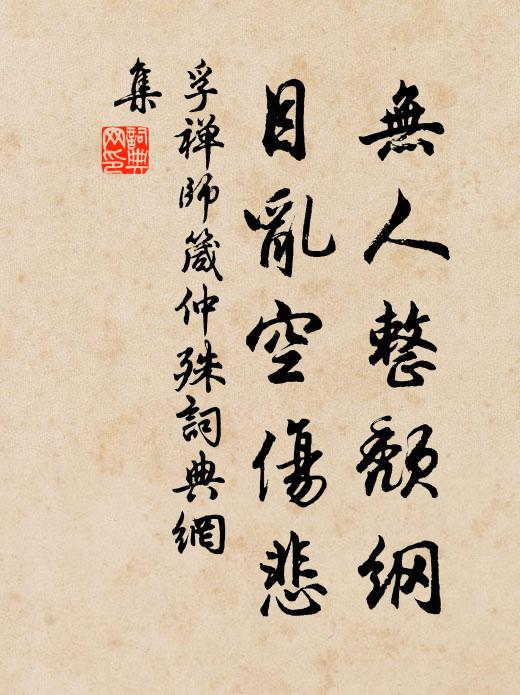 無人整頹綱
目亂空傷悲
孚禪師箴仲殊詞典網
集
詞典網印